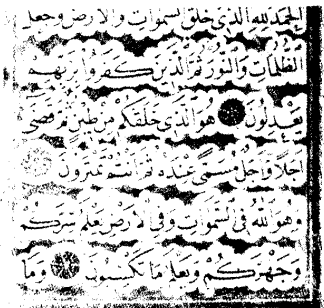 الحمد لله الذي خلق السموات والارض وجعل
الظلمات والنور ثم الذين كفروا بربهم
يعدلون هو الذي خلقكم من طين ثم قضى
اجلا واجل مسمى عنده ثم انتم تمترون
وهو الله في السموات وفي الارض يعلم سركم
وجهركم ويعلم ما تكسبون وما